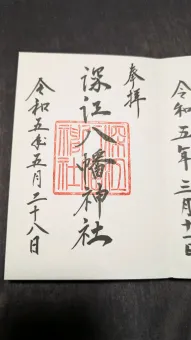 奉拝
深江八幡神社
令和五年五月二十八日
令和五年三月十一日